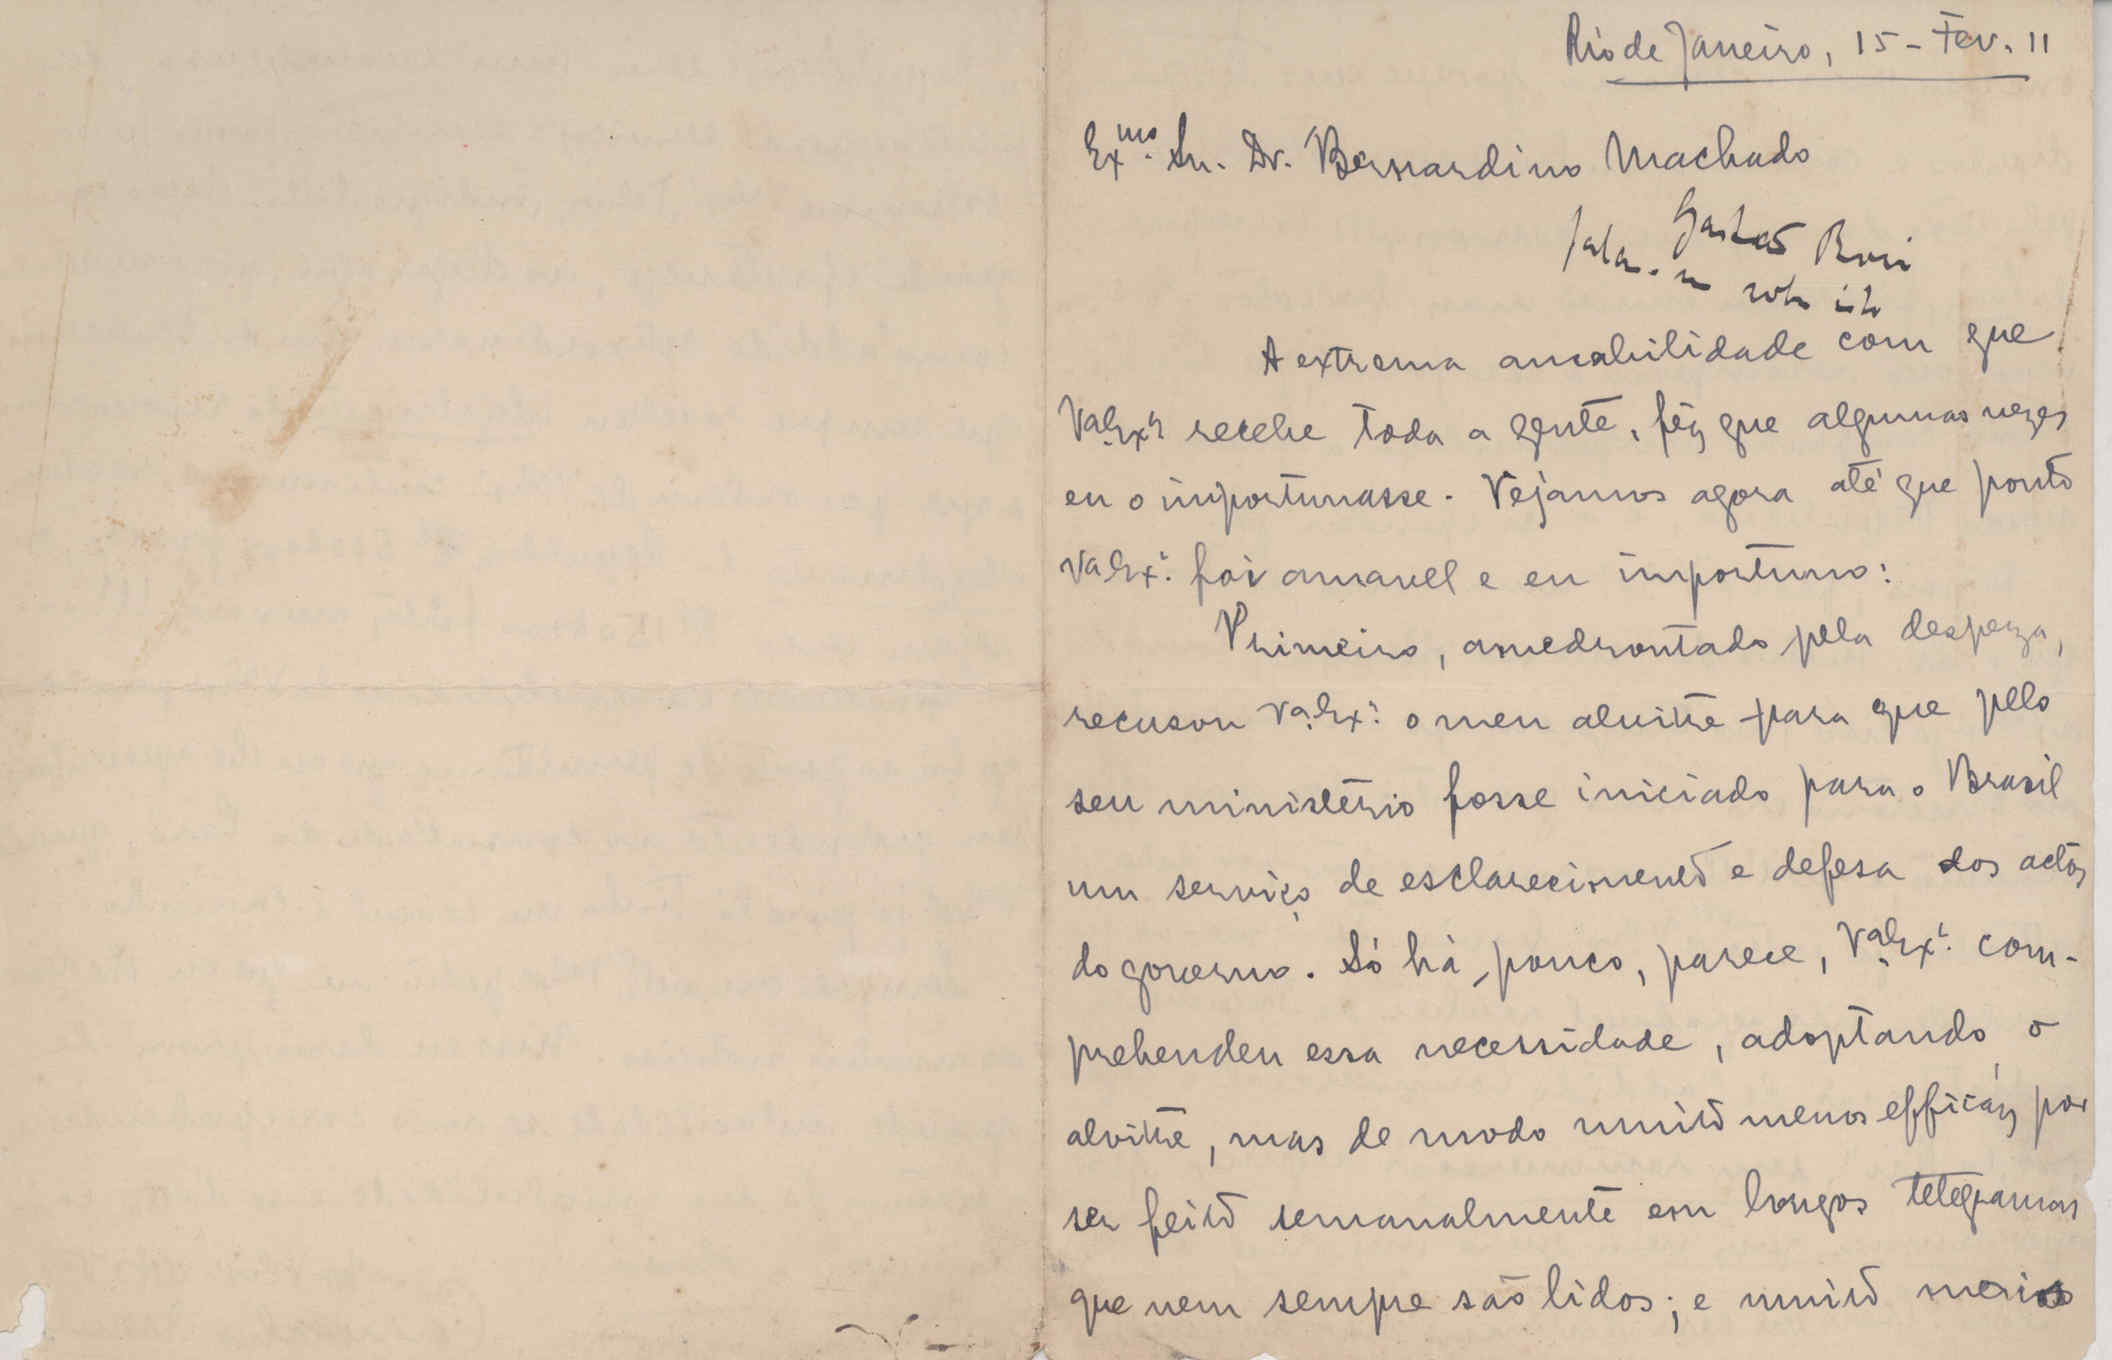 Rio de Janeiro, 15 - Fev. 11
Exmo. Sr. Dr. Bernardino Machado
A extrema amabilidade com que
Va. Exa. recebe toda a gente, fez que algumas vezes
eu o importunasse. Vejamos agora até que ponto
Va. Exa. foi amavel e eu importuno:
Primeiro, amedrontado pela despeza,
recusou Va. Exa. o meu alvitre para que pelo
seu ministério fosse iniciado para o Brasil
um serviço de esclarecimento e defesa dos actos
do governo. Só há pouco, parece, Va. Exa. com-
prehendeu essa necessidade, adoptando o
alvitre, mas de modo muito menos efficáz por
ser feito semanalmente em longos telegramas
que nem sempre são lidos; e muito